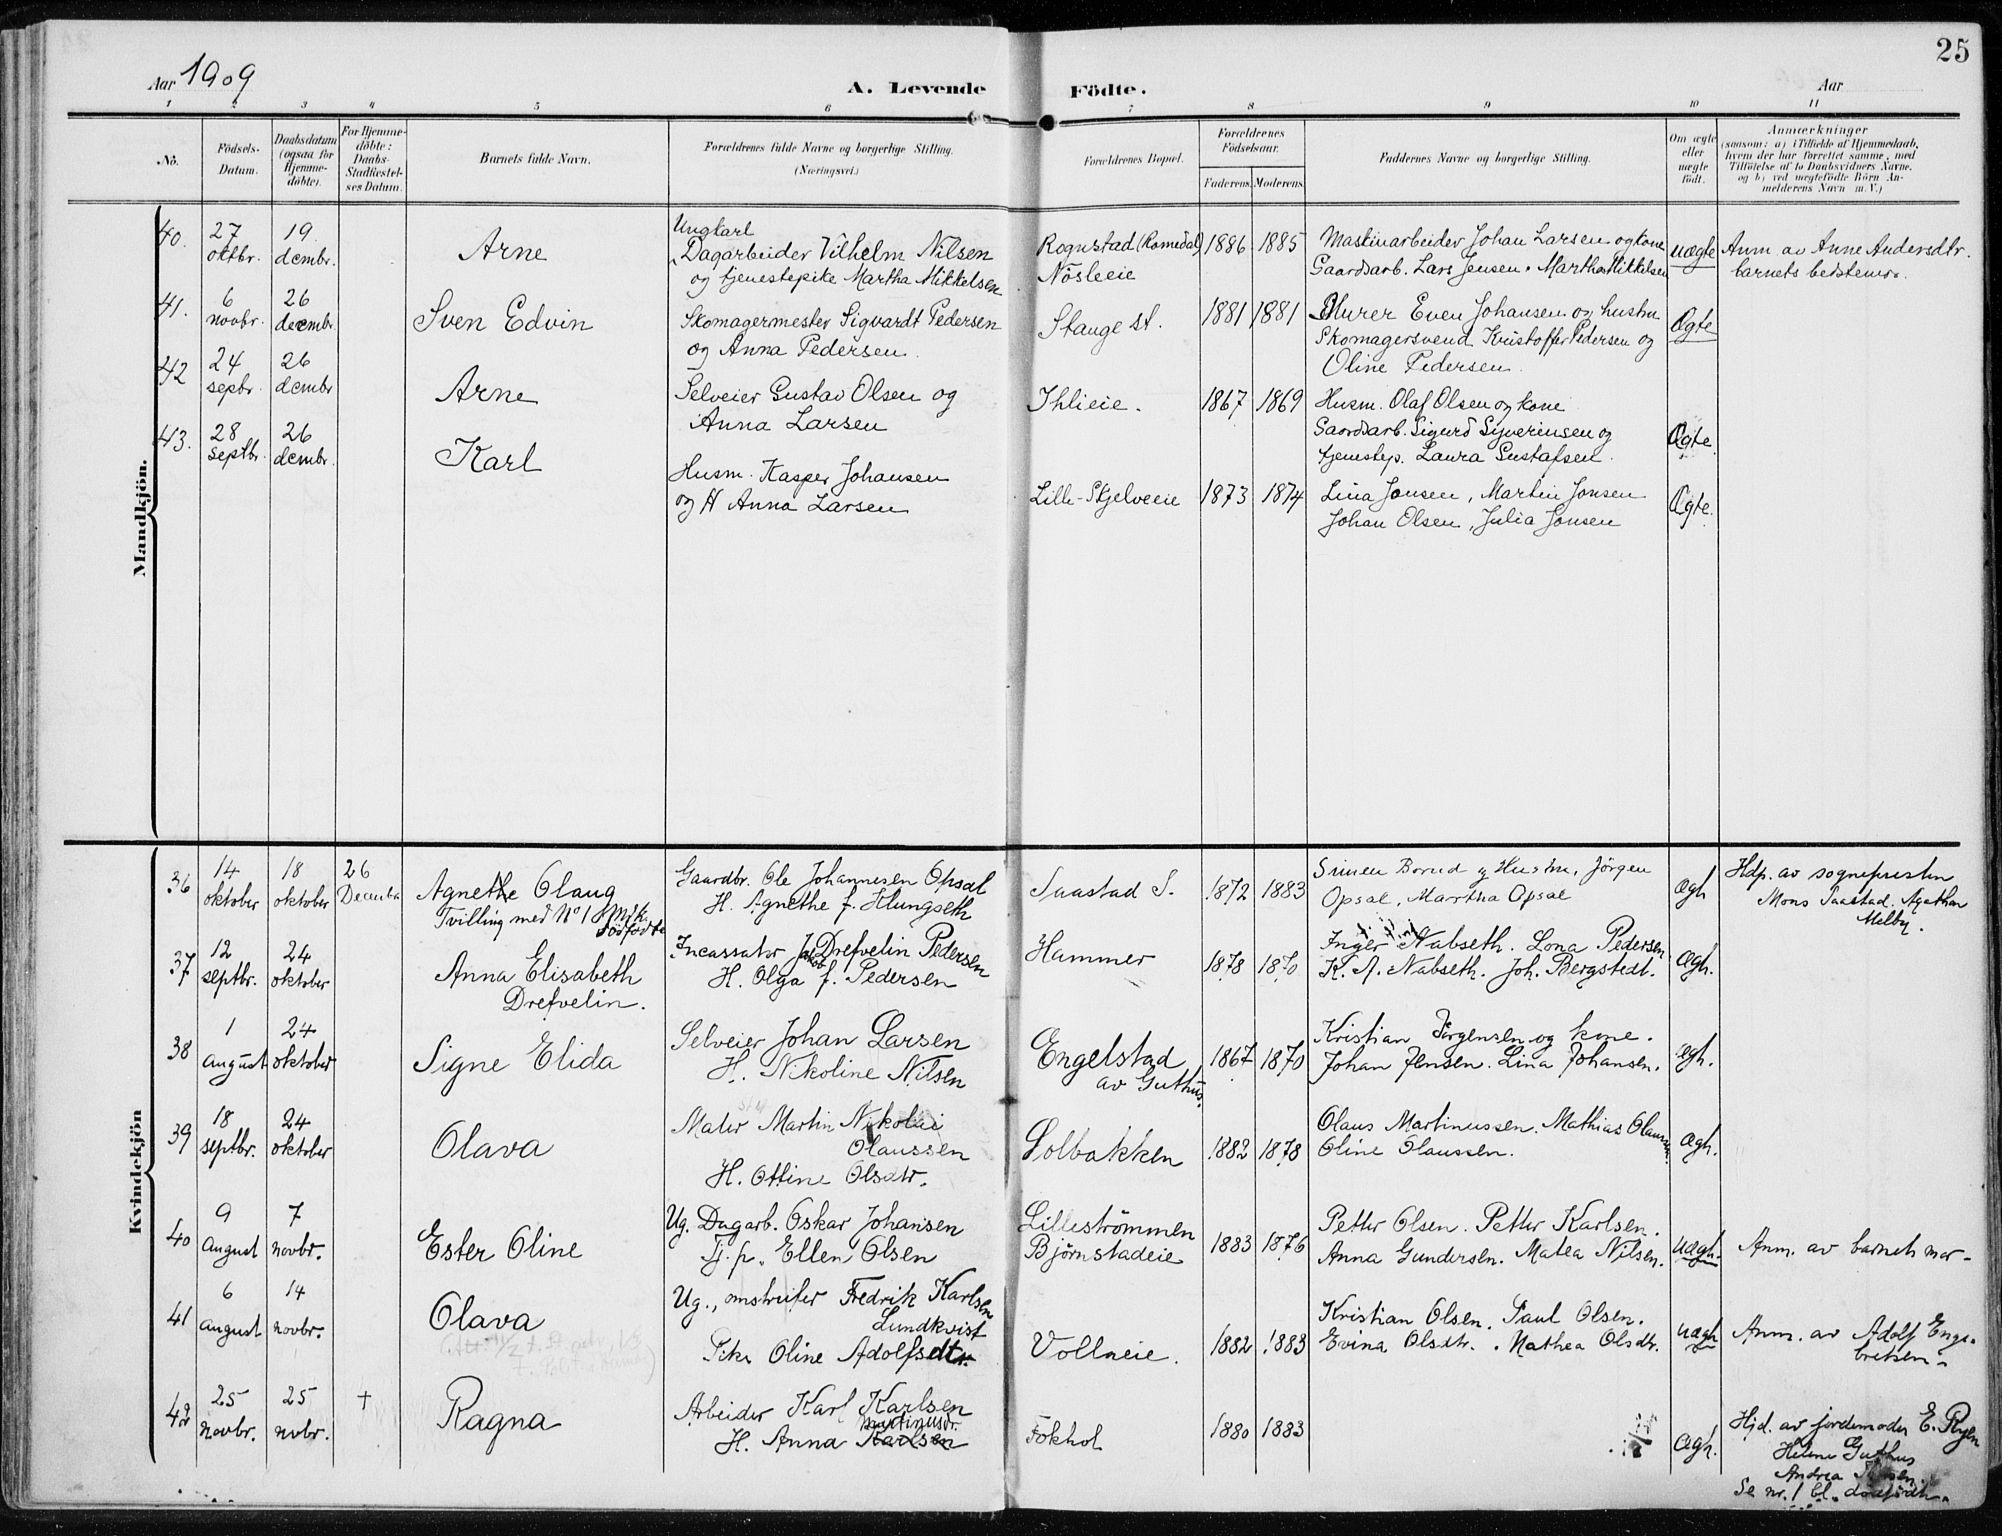 25
Aar 1909
A. Levende Födte.
Aar
1 2 3 4 5 6 7 8 9 10 11
No.
Födsels-Datum.
Daabsdatum (ogsaa for Hjemme-döbte).
For Hjemme-döbte: Daabs-Stadfæstel-ses Datum.
Barnets fulde Navn.
Forældrenes fulde Navne og borgerlige Stilling.
(Næringsvei.)
Forældrenes Bopæl.
Forældrenes Födselsaar.
Faderens. Moderens.
Faddernes Navne og borgerlige Stilling.
Om ægte eller uægte födt.
Anmærkninger
(saasom: a) i Tilfælde af Hjemmedaab,
hvem der har forrettet samme, med
Tilföielse af to Daabsvidners Navne.
og b) ved uægtefödte Börn An-
melderens Navn m. V.)
Mandkjön.
40. 27 oktbr. 19 decmbr. Arne
Ungkarl
Dagarbeider Vilhelm Nilsen
og tjenestepike Martha Mikkelsen
Rognstad (Romedal)
Nösleeie
1886 1885
Maskinarbeider Johan Larsen og kone
Gaardsarb. Lars Jensen. Martha Mikkelsen
uægte
Anm av Anne Andersdtr.
barnets bedstemor.
41. 6 novbr. 26 decmbr. Sven Edvin
Skomagermester Sigvardt Pedersen
og Anna Pedersen.
Stange st.
1881 1881
Murer Even Johansen og hustru
Skomagersvend Kristoffer Pedersen og
Oline Pedersen.
Ægte
42 24 septbr. 26 decmbr Arne
Selveier Gustav Olsen og
Anna Larsen
Ihlieie.
1867 1869
Husm. Olaf Olsen og kone
Gaardsarb. Sigurd Syverinsen og
tjenestep. Laura Gustafsen.
Ægte.
43. 28 septbr. 26 decmbr. Karl
Husm. Kasper Johansen
og H Anna Larsen
Lille-Skjelveeie
1873 1874
Lina Jonsen, Martin Jonsen
Johan Olsen, Julia Jonsen
Ægte.
Kvindekjön
36 14 oktober 18 oktober 26 December Agnethe Olaug
Tvilling med No 1 Mk. dödfödte
Gaardbr. Ole Johannesen Opsal
H. Agnethe f. Hungseth
Saastad S.
1872 1883
Simen Borud og Hustru, Jörgen
Opsal, Martha Opsal
Ægh
Hdp. av sognepræsten
Mons Saastad. Agathon
Melby.
37 12 septbr. 24 oktober Anna Elisabeth
Drefvelin.
Incassator Jakob Drefvelin Pedersen
H. Olga f. Pedersen
Hammer
1878 1870
Inger Nabseth. Lona Pedersen
K. A. Nabseth. Joh. Bergstedt.
Ægh.
38 1 august 24 oktober Signe Elida
Selveier Johan Larsen
H. Nikoline Nilsen
Engelstad
av Guthus.
1867 1870
Kristian Jörgensen og kone.
Johan Jensen. Lina Johansen.
Ægh.
39 18 septbr. 24 oktober Olava
Maler Martin Nikolai
Olaussen
H. Otline Olsdtr.
Solbakken
1882 1878
Olaus Martinussen. Mathias Olaussen
Oline Olaussen.
Ægh.
40 9 august 7 novbr. Ester Oline
Ug. Dagarb. Oskar Johansen
Tj. p. Ellen Olsen
Lilleströmmen
Björnstadeie
1883 1876
Petter Olsen. Petter Karlsen.
Anna Gundersen. Matea Nilsen.
uægh.
Anm. av barnets mor.
41 6 august 14 novbr. Olava
Ug., omstreifer Fredrik Karlsen
Lundkvist
Pike Oline Adolfsdtr.
Vollneie.
1882 1883
Kristian Olsen. Paul Olsen.
Evina Olsdtr. Mathea Olsdtr.
uægh
Anm. av Adolf Enge-
bretsen.
42 25 novbr. 25 nvbr. + Ragna
Arbeider Karl Karlsen
H. Anna Karlsen
Martinusdr.
Fokhol
1880 1883
Ægh.
Hjd. av jordemoder E. Ryen
Helene Guthus
Andrea
Se nr. 1 bl. dødfødte.